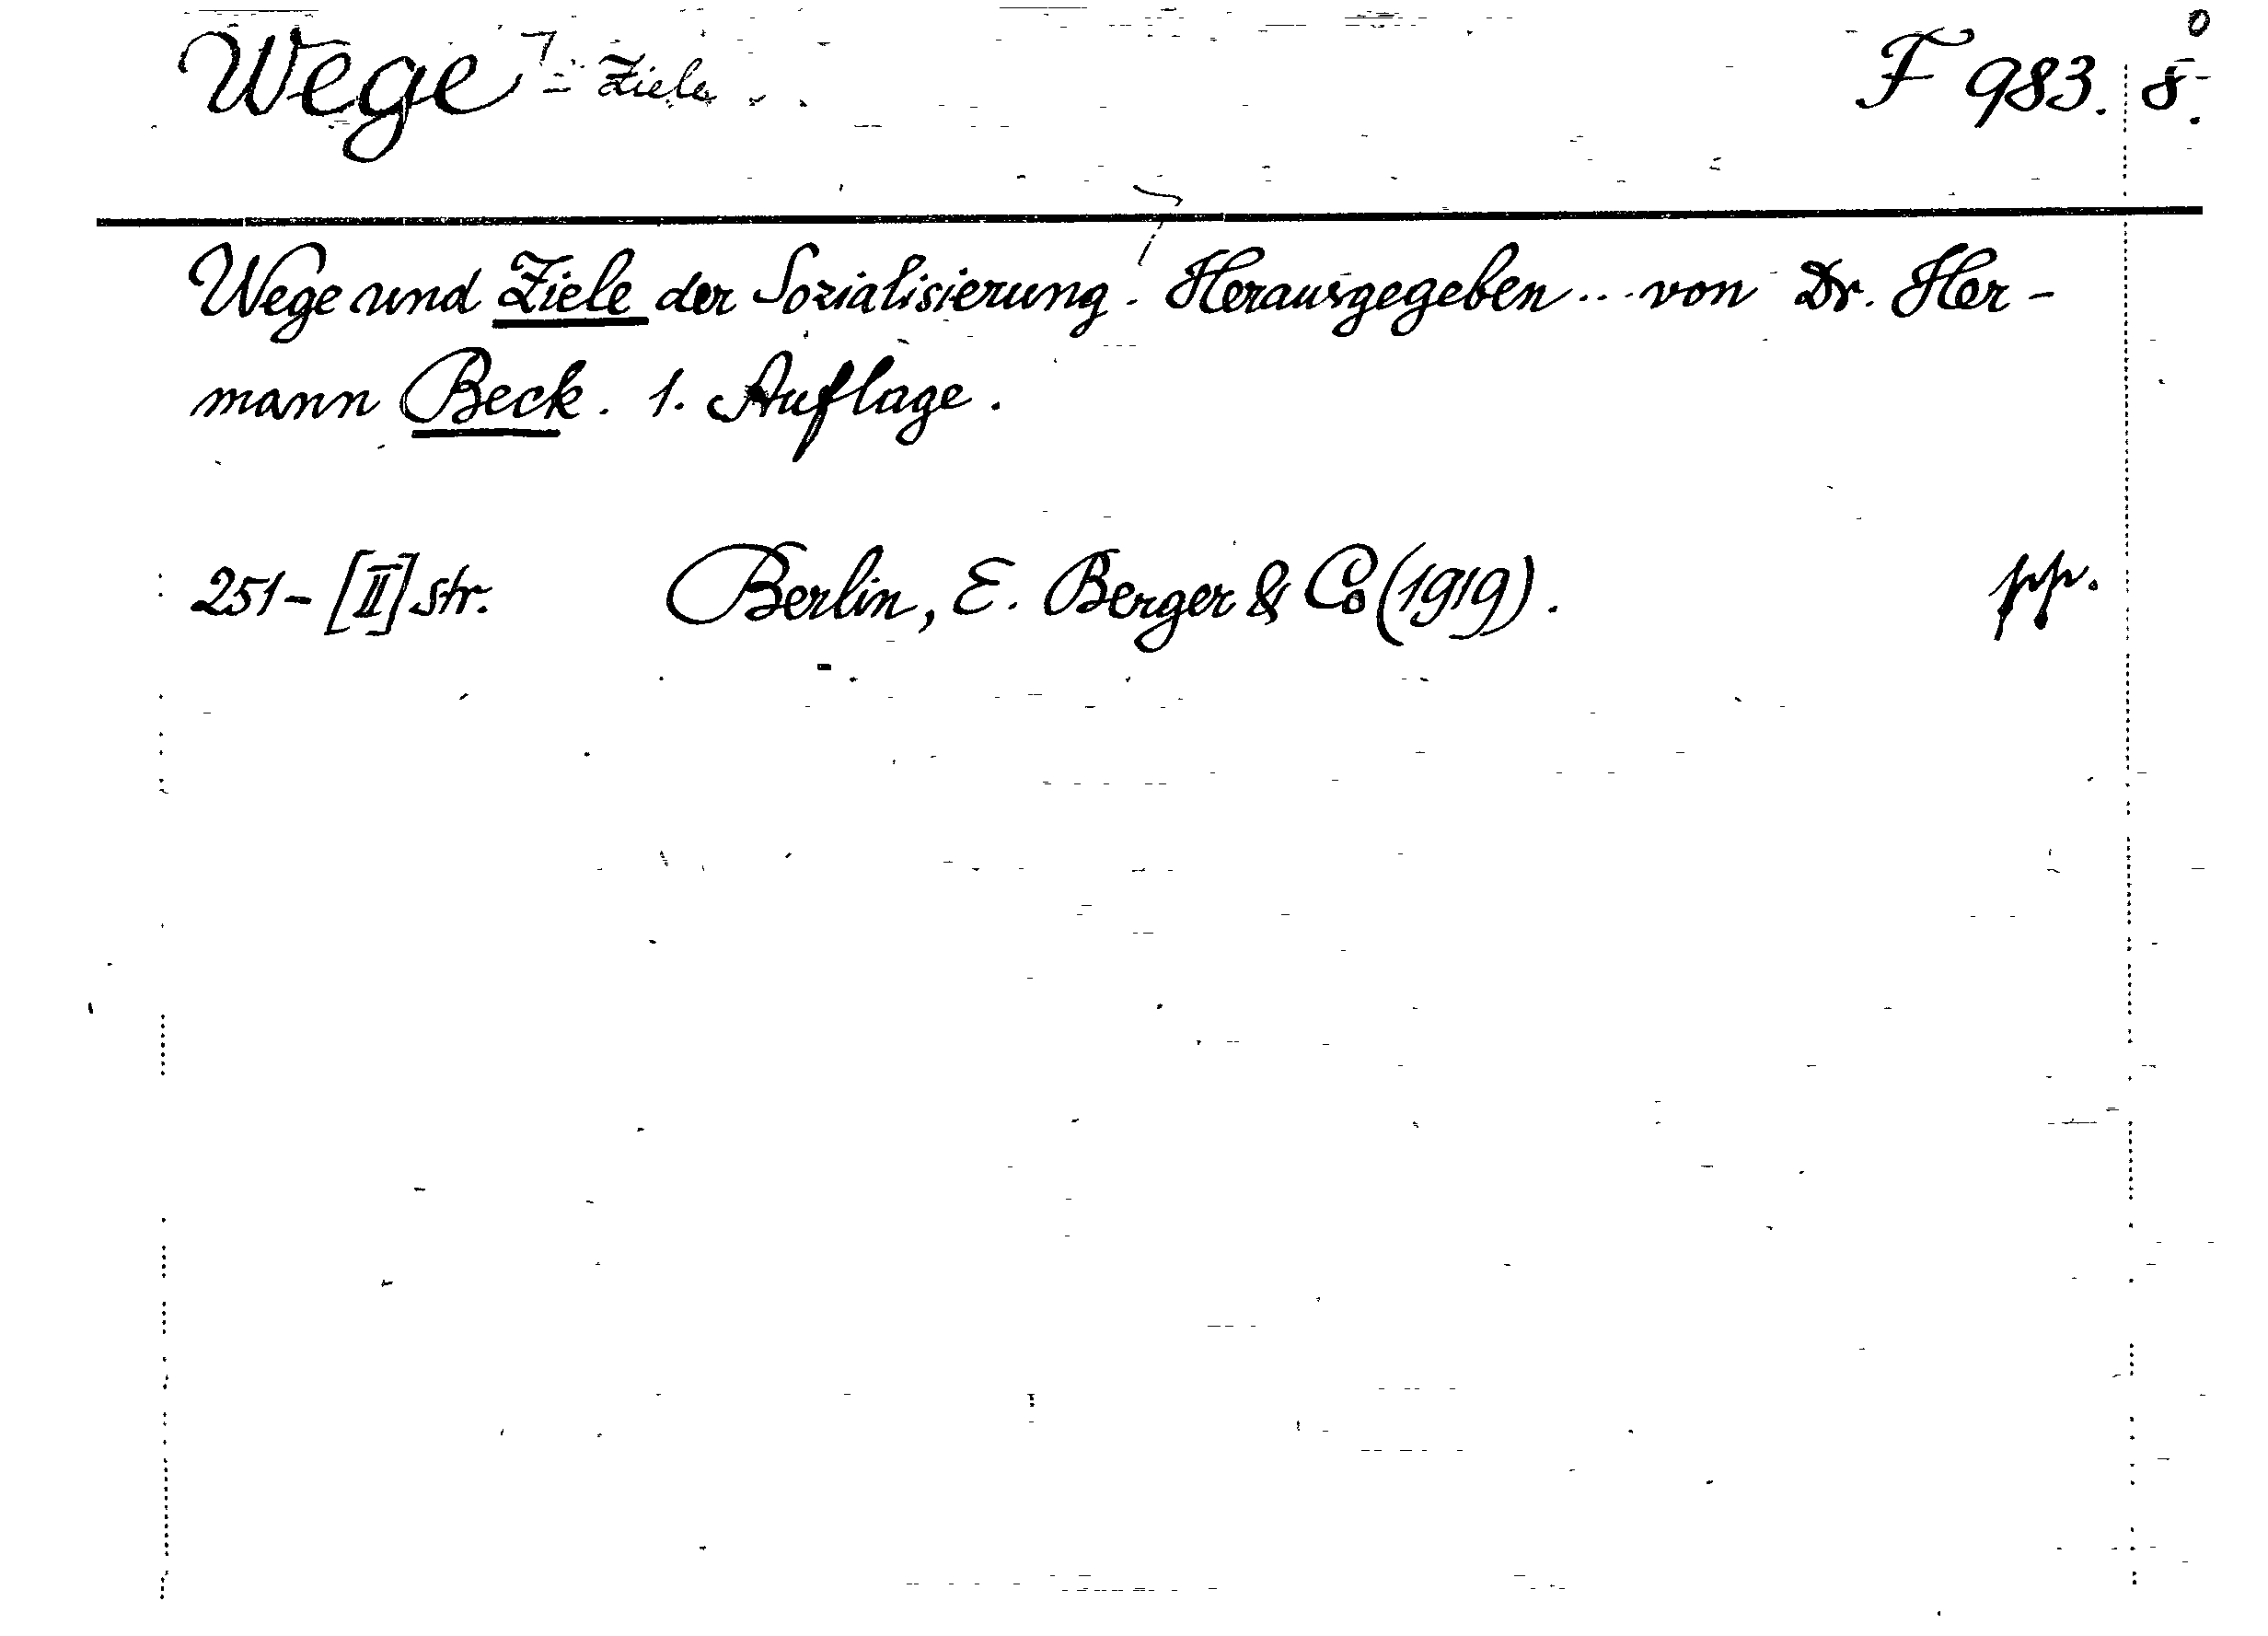 Wege = Ziele F 983. 8°.
Wege und Ziele der Sozialisierung. Herausgegeben ... von Dr. Her-
mann Beck. 1. Auflage.
251-[II] str. Berlin, E. Berger & Co (1919). pp.